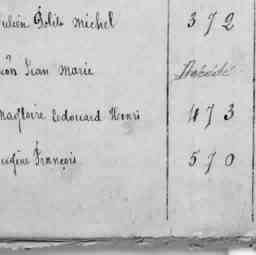 Julien Polite Michel 372
Jean Marie Décédé
Magloire Edouard Henri 473
Eugène François 570